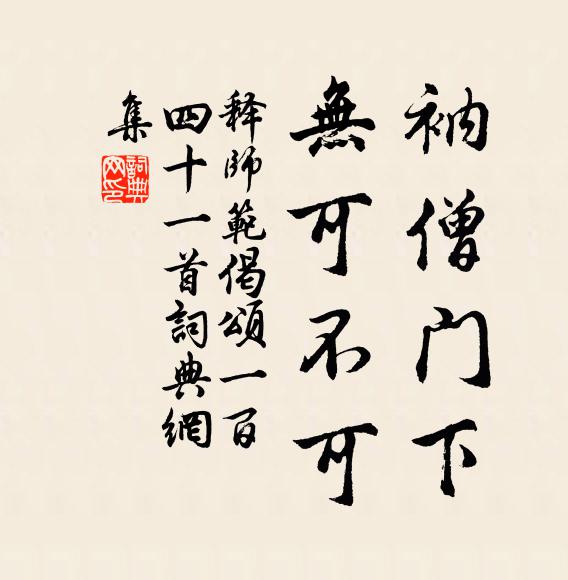 衲僧門下
無可不可
释師範偈頌一百
四十一首詞典網
集
詞典
网印